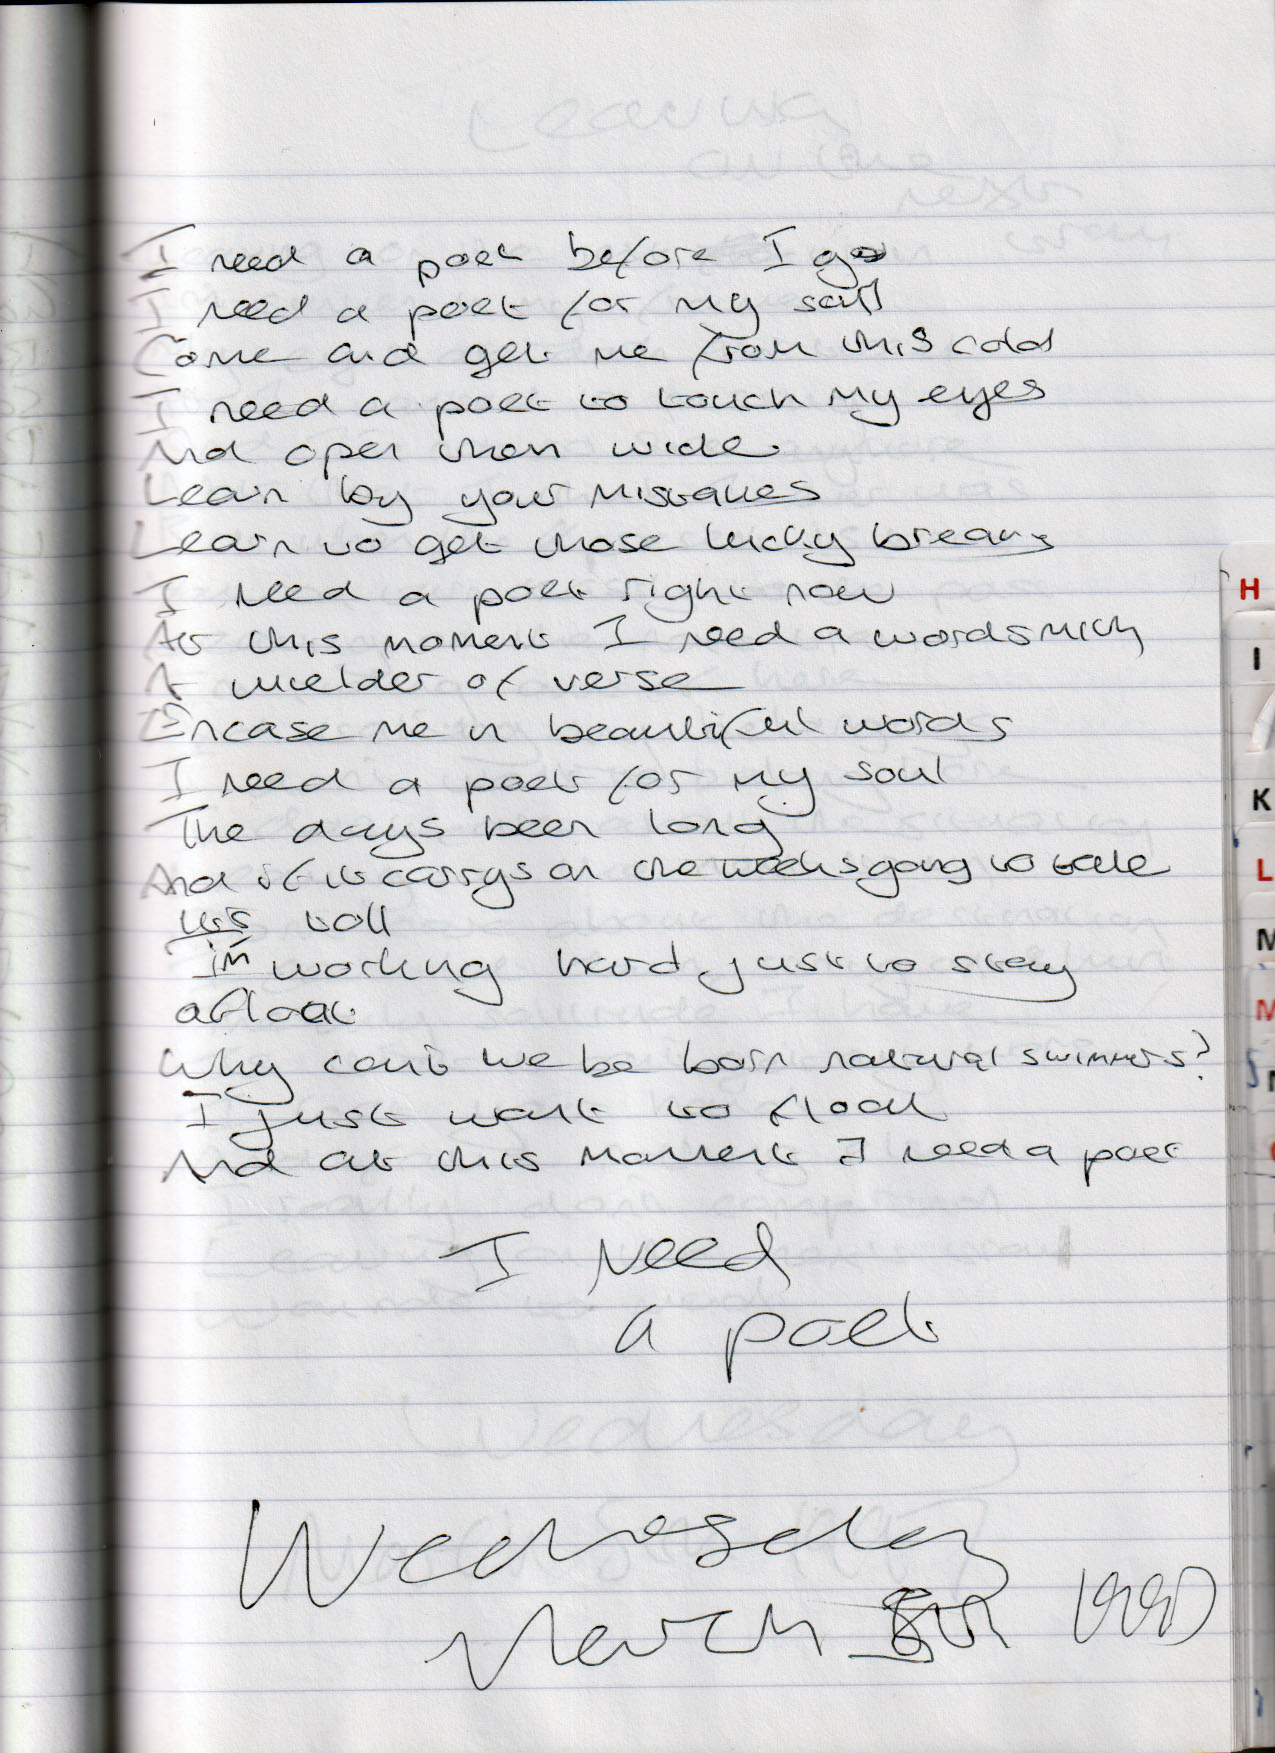 I need a poet before I go
I need a poet for my soul
Come and get me from this cold
I need a poet to touch my eyes
And open them wide
Learn by your mistakes
Learn to get those lucky breaks
I need a poet right now
At this moment I need a wordsmith
A wielder of verse
Encase me in beautiful words
I need a poet for my soul
The days been long
And if it carrys on the weeks going to take
its toll
I'm working hard, just to stay
afloat
Why can't we be born natural swimmers?
I just want to float
And at this moment I need a poet
I need
a poet
Wednesday
March 8th
H
I
K
L
M
M